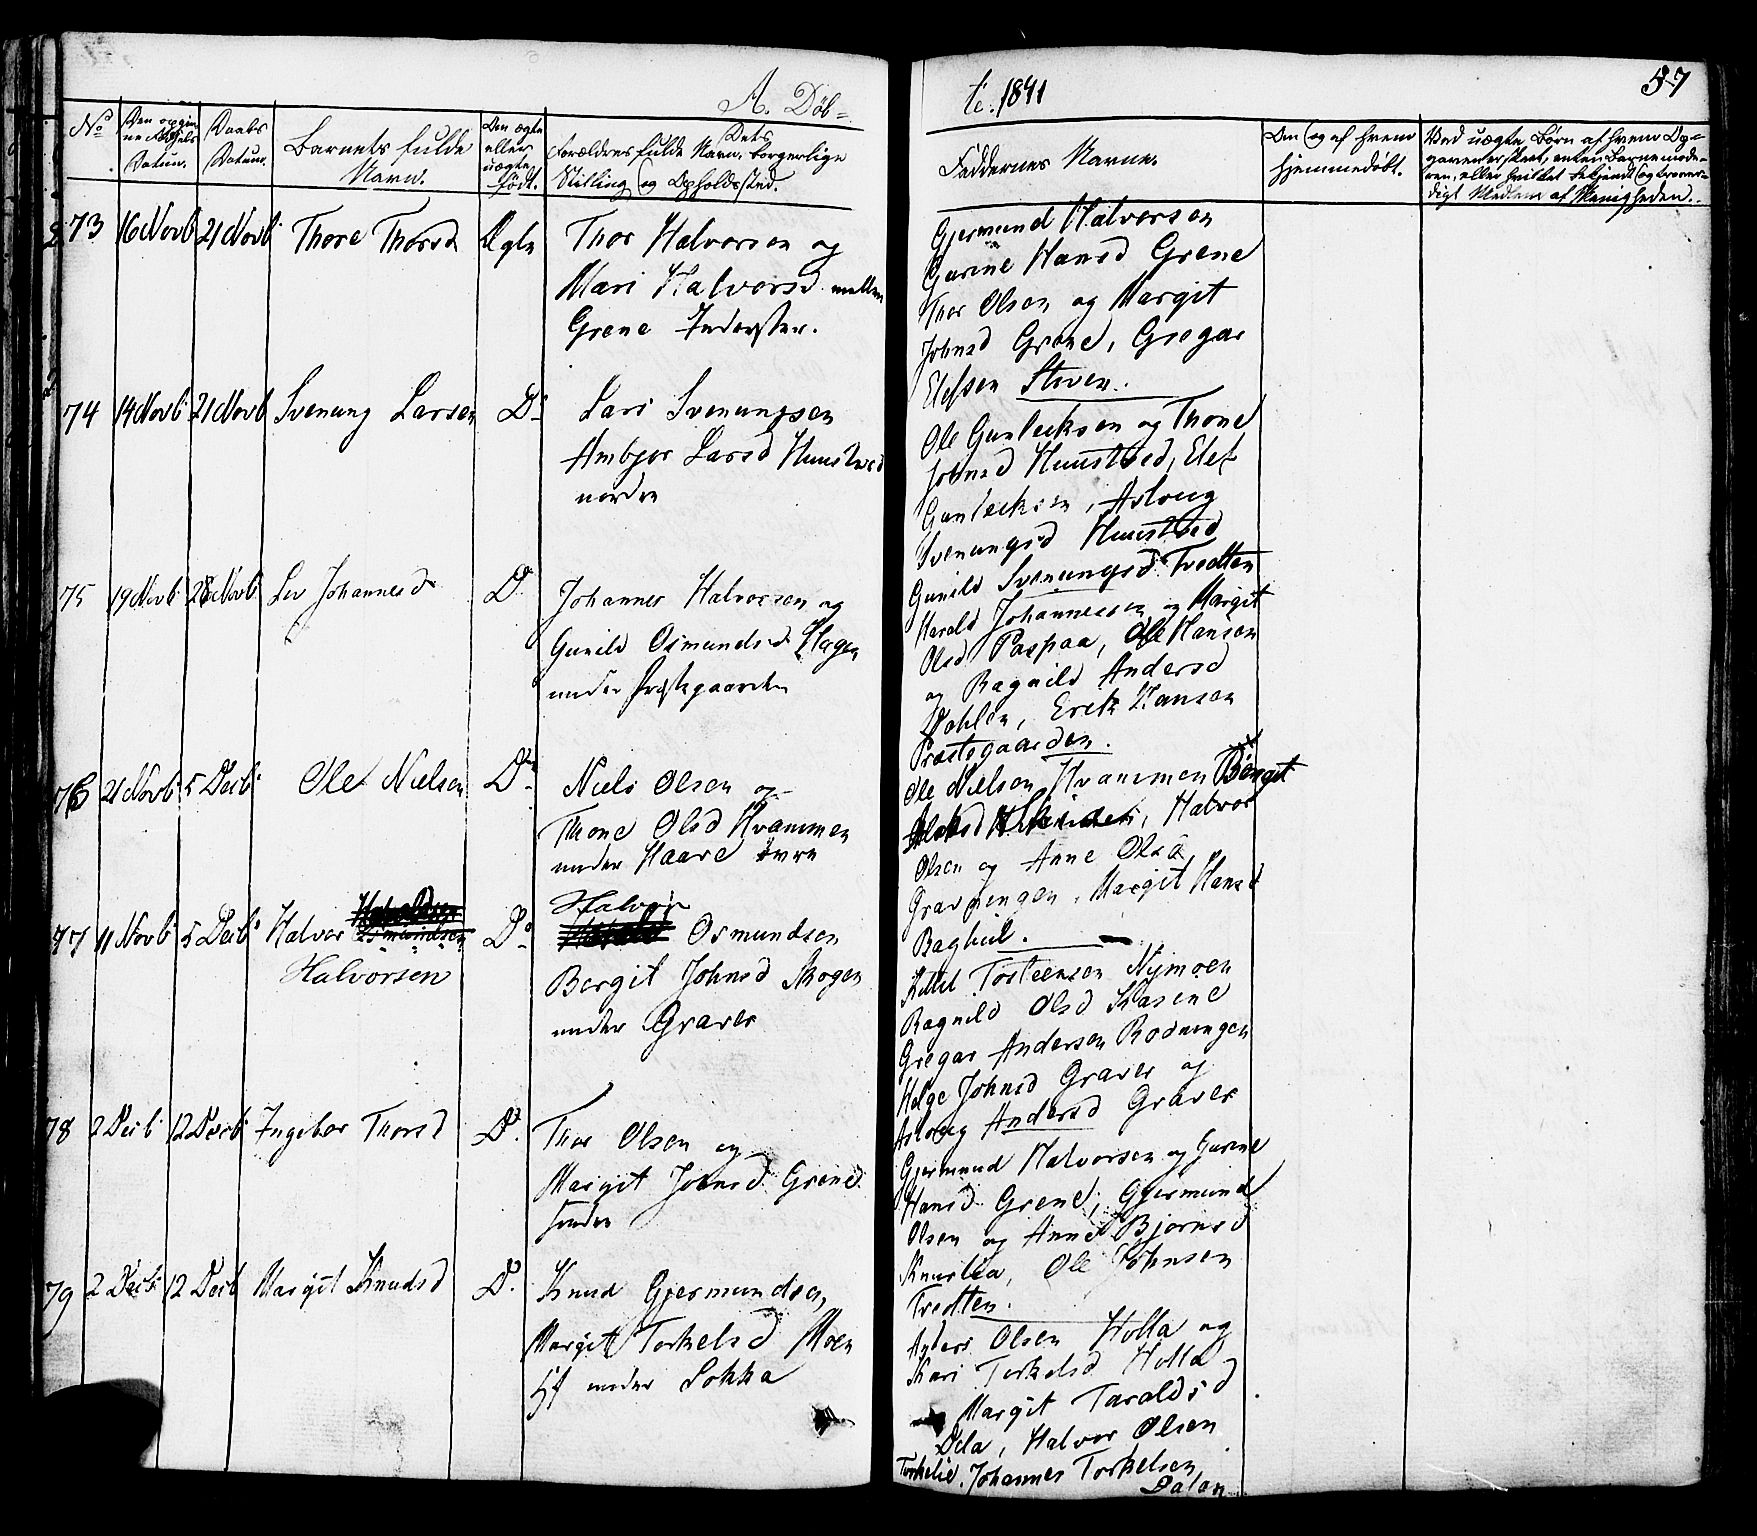 A. Døb=
te. 1841
57
No
Den opgivne Fødsels Datum.
Daabs Datum.
Barnets fulde Navn.
Den ægte eller uægte født.
Forældrenes fulde Navn. Dets borgerlige Stilling og Opholdssted.
Faddernes Navne.
Om og af hvem hjemmedøbt.
Ved uægte Børn af hvem Opgaven er skeet, enten Barnemoderen, eller hvilket bekjendt og troværdigt Medlem af Menigheden.
73 16 Novb 21 Novb Thore Thorsd Ægte
Thor Halvorsen og
Mari Halvorsd mellem
Grene Inderster.
Gjermund Halvorsen
Gurine Hansd Grene
Thor Olsen og Margit
Johnsd Grene, Gregar
Elefsen Stoven.
74 14 Novb 21 Novb Svenung Larsen Do
Lars Svenungsen
Ambjor Larsd Huustved
nordre
Ole Gunleiksen og Thone
Johnsd Huustved, Elef
Gunleiksen, Asloug
Svenungsd Huustved
Gunild Svenungsd Tvedten
75 19 Novb 28 Novb Liv Johannesd Do
Johannes Halvorsen og
Gunild Osmundsd Hagen
under Præstgaarden
Harald Johannessen og Margit
Olsd Paspaa, Ole Hansen
og Ragnild Andersd
Dahlen, Erek Hansen
Præstegaarden.
76 21 Novb 5 Decb Ole Nielsen Do
Niels Olsen og
Thone Olsd Kvammen
under Haave øvre
Ole Nielsen Kvammen Bergit
Halvor
Olsen og Anne Olsd
Gravningen, Margit Hansd
Baghul.
77 11 Novb 5 Decb Halvor Do
Halvorsen
Halvor
Osmundsen
Bergit Johnsd Skogen
under Graver
Ketil Torsteensen Nymoen
Ragnild Olsd Kasene
Gregar Andersen Rodningen
Helge Johnsd Graver og
Asloug Andersd Graver
78 2 Decb 12 Decb Ingebor Thorsd Do
Thor Olsen og
Margit Johnsd Grene
søndre
Gjermund Halvorsen og Gurine
Hansd Grene, Gjermund
Olsen og Anne Bjornsd
Knurlia, Ole Johnsen
Tvedten.
79 2 Decb 12 Decb Margit Knudsd Do
Knud Gjermundsen,
Margit Torkelsd Moen
under Lokka
Anders Olsen Holla og
Kari Torkelsd Holla
Margit Taraldsd
Dela, Halvor Olsen
Torkelie, Johannes Torkelsen
Dalen